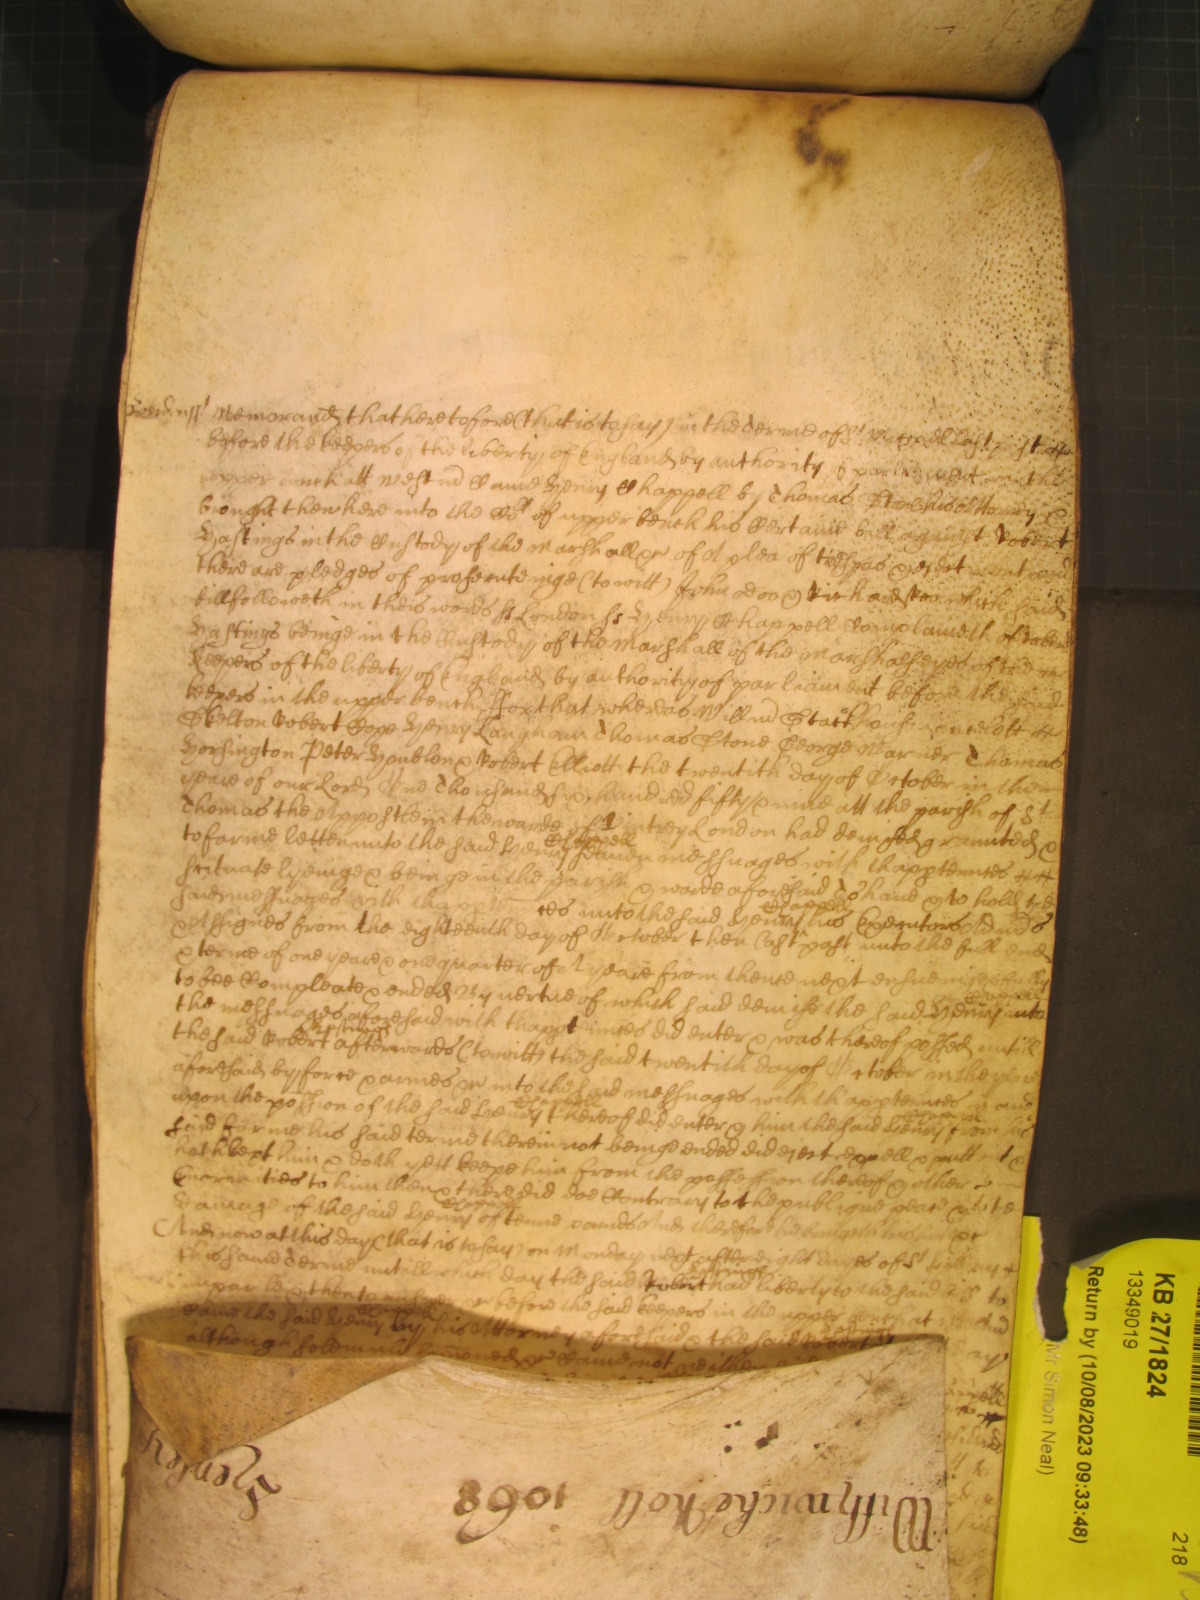 London ss Memorand that heretofore (that is to say) in the Terme of St Michaell last past
before the keepers of the liberty of England by authority of parliament in the
upper bench att Westm Came Henry Chappell by Thomas his attorney &
brought then here into the Co't of upper bench his Certaine bill against Robert
Hastings in the Custody of the Marshall &c of A plea of trespas & ejectment and
there are pledges of prosecuteinge (to witt) John Doo & Richard Roo which said
bill followeth in theis words ss London ss Henry Chappell Complaineth of Robert
Hastings beinge in the Custody of the Marshall of the Marshalseyes of the
keepers of the liberty of England by authority of parliament before the said
keepers in the upper bench For that whereas Willm Stackhouse
Skelton Robert Pope Henry Langham Thomas Stone George Warner Thomas
Horsington Peter Houblon & Robert Elliott the twentith day of October in the
yeare of our Lord One Thousand Six hundred fifty & nine att the parish of St
Thomas the Appostle in the warde of Vintrey London had demised graunted &
to farme letten unto the said Henry Chappell messuages with thapptennces
scituate lyeinge & beinge in the parish & warde aforesaid To have & to hold the
said messuages with thapptennces unto the said Henry Chappell his Executors Admrs
& Assignes from the eighteenth day of October then last past unto the full end
& terme of one yeare & one quarter of A yeare from thence next ensueinge & fully
to bee Compleate & ended By vertue of which said demise the said Henry Chappell into
the messuages aforesaid with thapptennces did enter & was thereof possed untill
the said Robert Hastings afterwards (to witt) the said twentith day of October in the yeare
aforesaid by force & armes &c into the said messuages with thapptennces in and
upon the possion of the said Henry Chappell thereof did enter & him the said Henry Chappell from his
said farme his said terme therein not beinge ended did eject expell & putt out &
hath kept him & doth yett keepe him from the possession thereof & other
Enormities to him then & there did doe Contrary to the publique peace & to the
damage of the said Henry Chappell of tenne pounds And therefore he bringeth his suit &c
And now at this day (that is to say) on Monday next after eight dayes of St Hillary
this same Terme untill which day the said Robert Hastings had liberty to the said bill to
imparle & then to answer &c before the said keepers in the upper bench at Westm
Came the said Henry Chappell by his attorney aforesaid & the said Robert
although solemnly not
Henley
Withwicke Roll 1068
KB 27/1824
13349019
Return by (10/08/2023 09:33:48)
Mr Simon Neal)
218